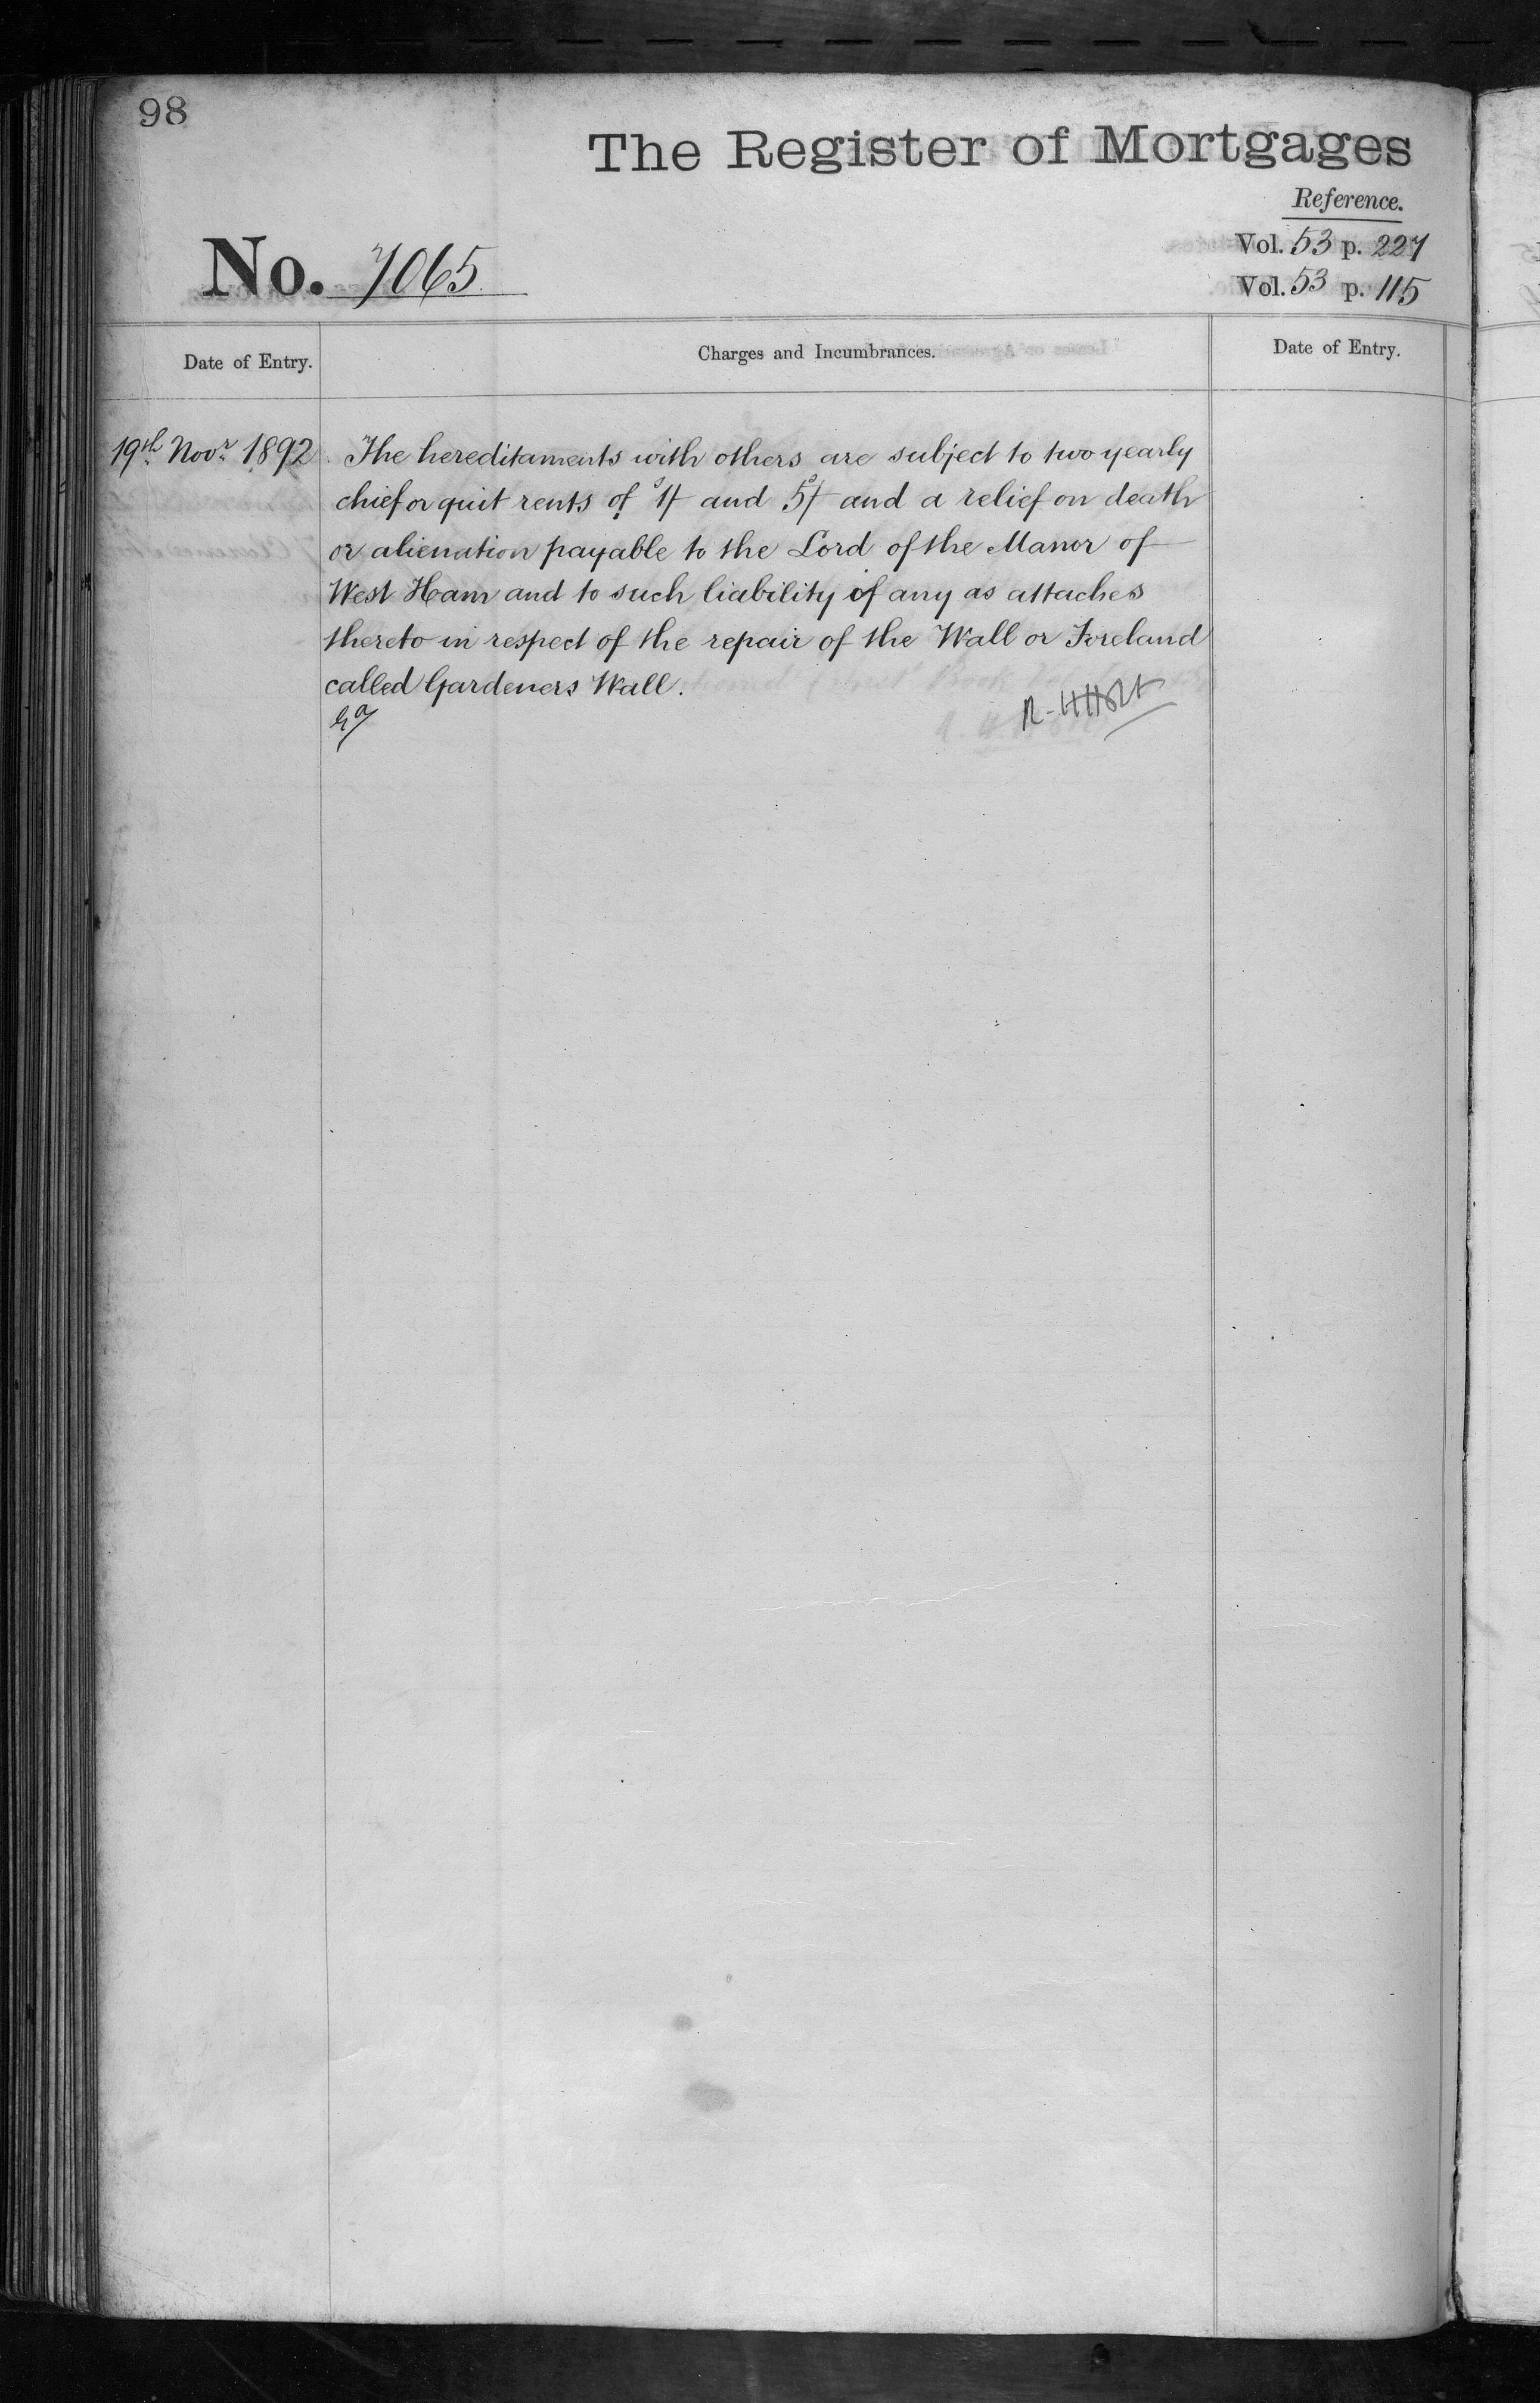 98
The Register of Mortgages
Reference.
No. 7065
Vol. 53 p. 227
Vol. 53 p. 115
Date of Entry.
Charges and Incumbrances.
Date of Entry.
19th Novr 1892
The hereditaments with others are subject to two yearly
chief or quit rents of and and a relief on death
or alienation payable to the Lord of the Manor of
West Ham and to such liability if any as attaches
thereto in respect of the repair of the Wall or Foreland
called Gardeners Wall.
R. H Holt